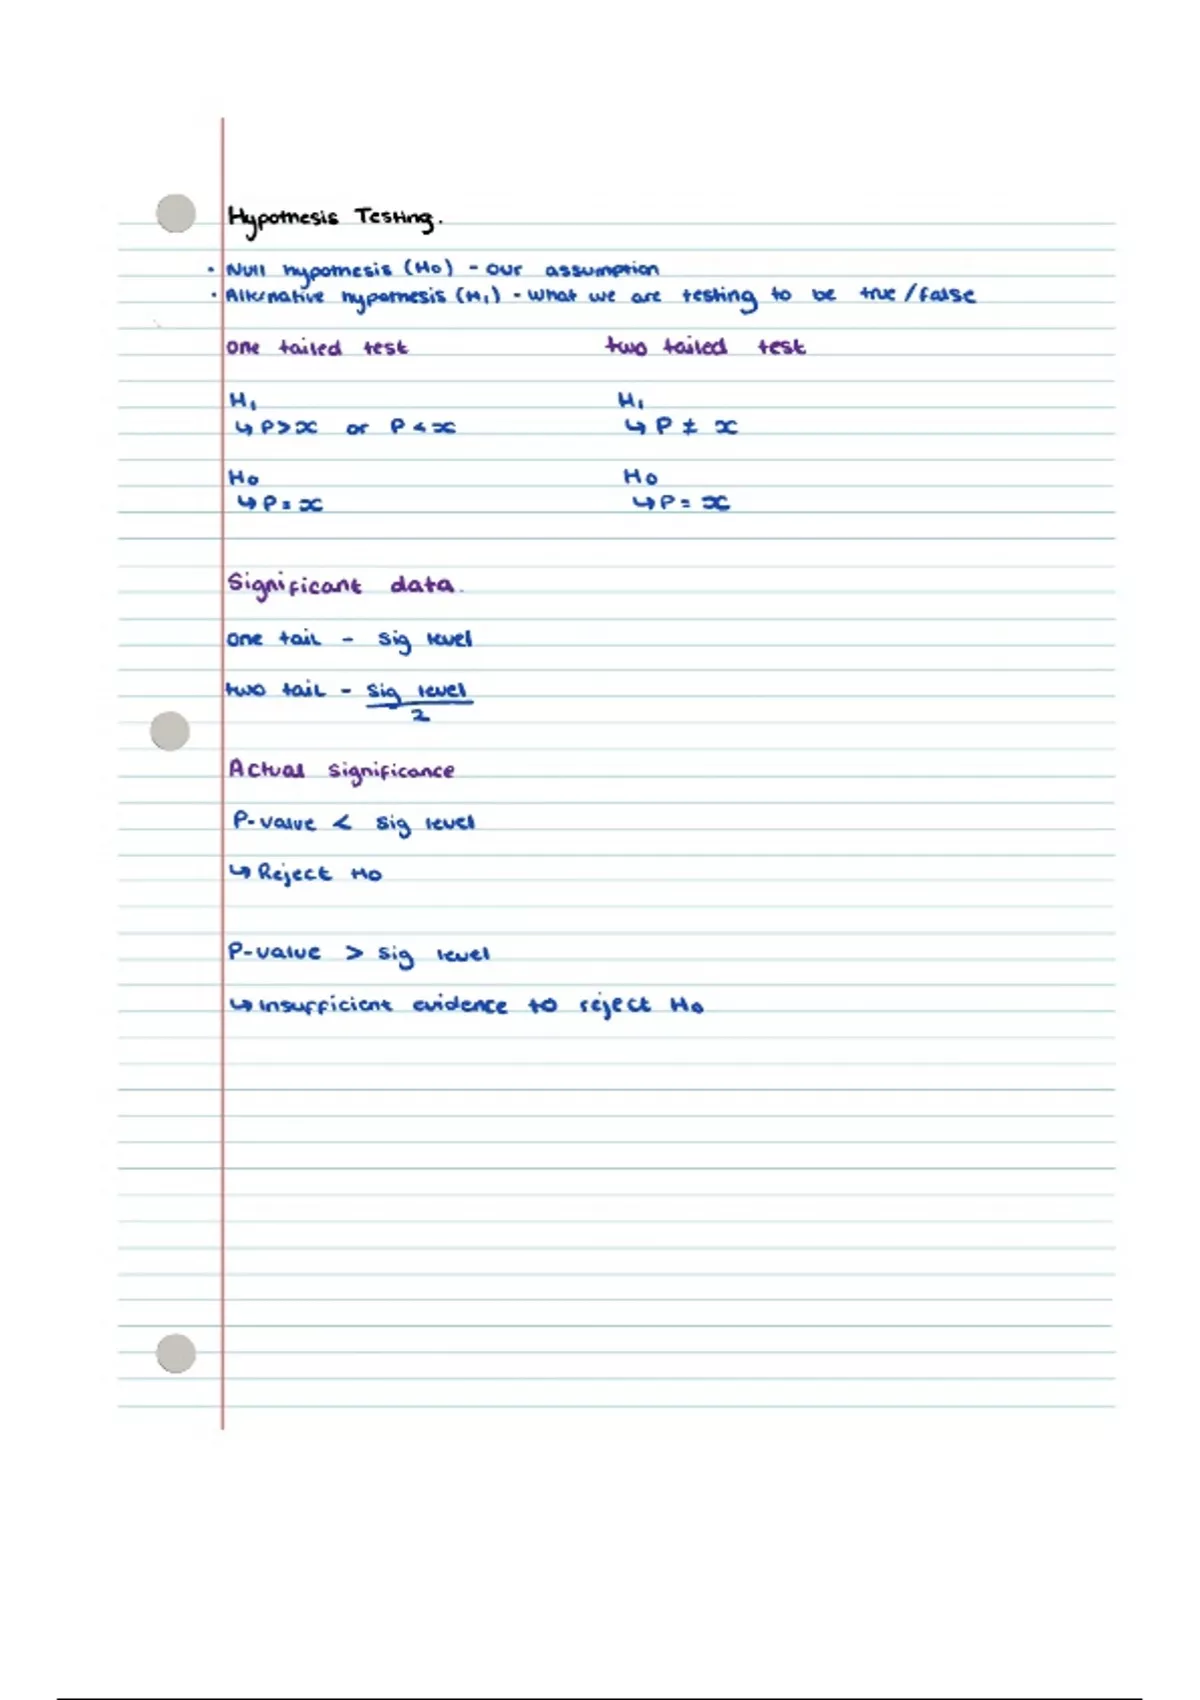 Hypothesis Testing.
• Null hypothesis (H0) - our assumption
• Alternative hypothesis (H1) - what we are testing to be true/false
one tailed test
two tailed test
H1
↳ P > x or P < x
H1
↳ P ≠ x
H0
↳ P = x
H0
↳ P = x
Significant data.
one tail - sig level
two tail - sig level
2
Actual significance
P-value < sig level
↳ Reject H0
P-value > sig level
↳ insufficient evidence to reject H0